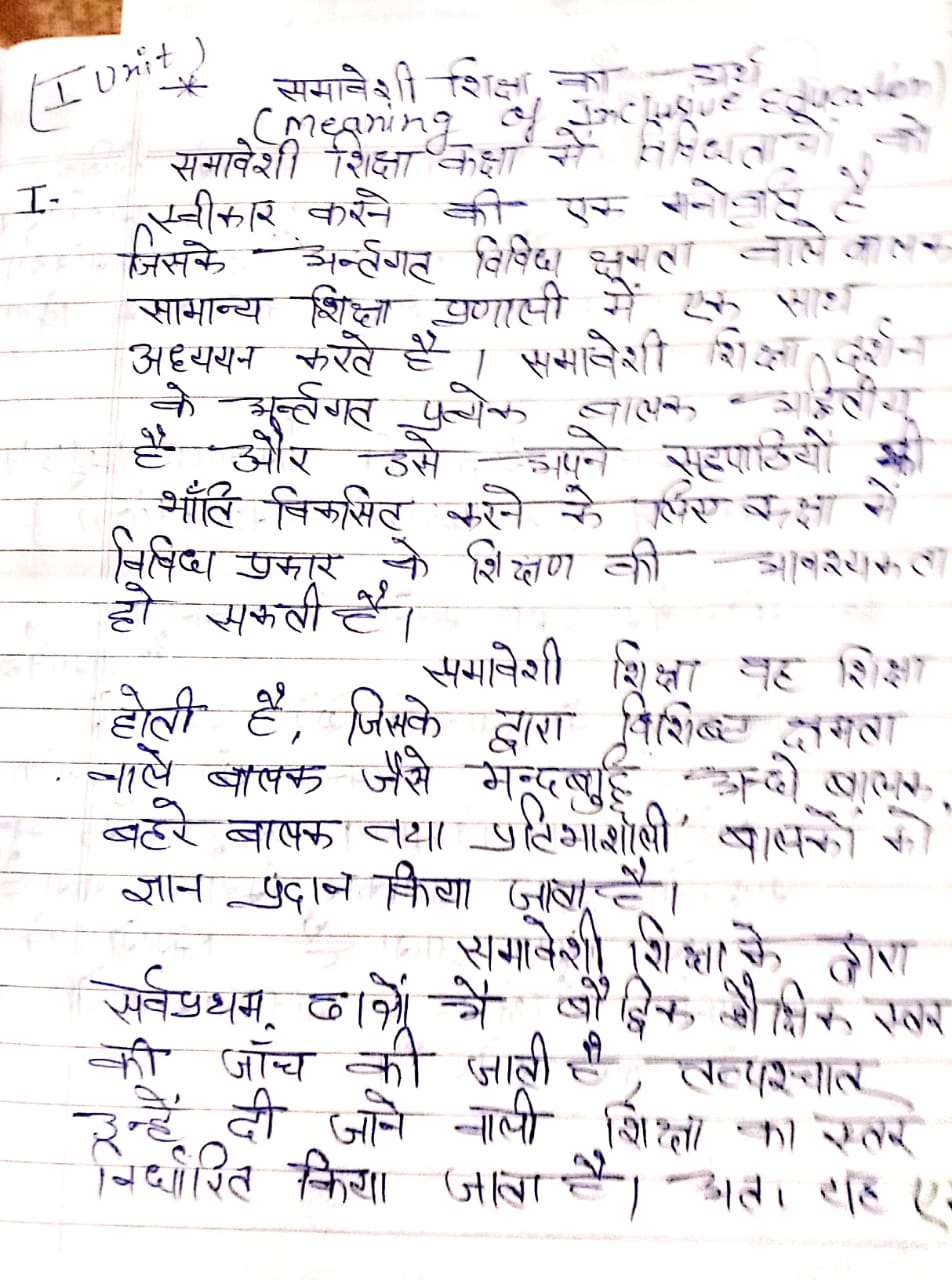 (I Unit) * समावेशी शिक्षा का अर्थ
(Meaning of Inclusive Education)
समावेशी शिक्षा कक्षा में विविधताओं को
I- स्वीकार करने की एक मनोवृत्ति है
जिसके अर्न्तगत विविध क्षमता वाले बालक
सामान्य शिक्षा प्रणाली में एक साथ
अध्ययन करते है । समावेशी शिक्षा दर्शन
के अर्न्तगत प्रत्येक बालक अद्वितीय
है और उसे अपने सहपाठियों की
भाँति विकसित करने के लिए कक्षा में
विविध प्रकार के शिक्षण की आवश्यकता
हो सकती है।
समावेशी शिक्षा वह शिक्षा
होती है, जिसके द्वारा विशिष्ट क्षमता
वाले बालक जैसे मन्दबुद्धि अन्धे बालक,
बहरे बालक तथा प्रतिभाशाली बालकों को
ज्ञान प्रदान किया जाता है।
समावेशी शिक्षा के द्वारा
सर्वप्रथम छात्रों के बौद्धिक शैक्षिक स्तर
की जाँच की जाती है, तत्पश्चात
उन्हें दी जाने वाली शिक्षा का स्तर
निर्धारित किया जाता है। अतः यह